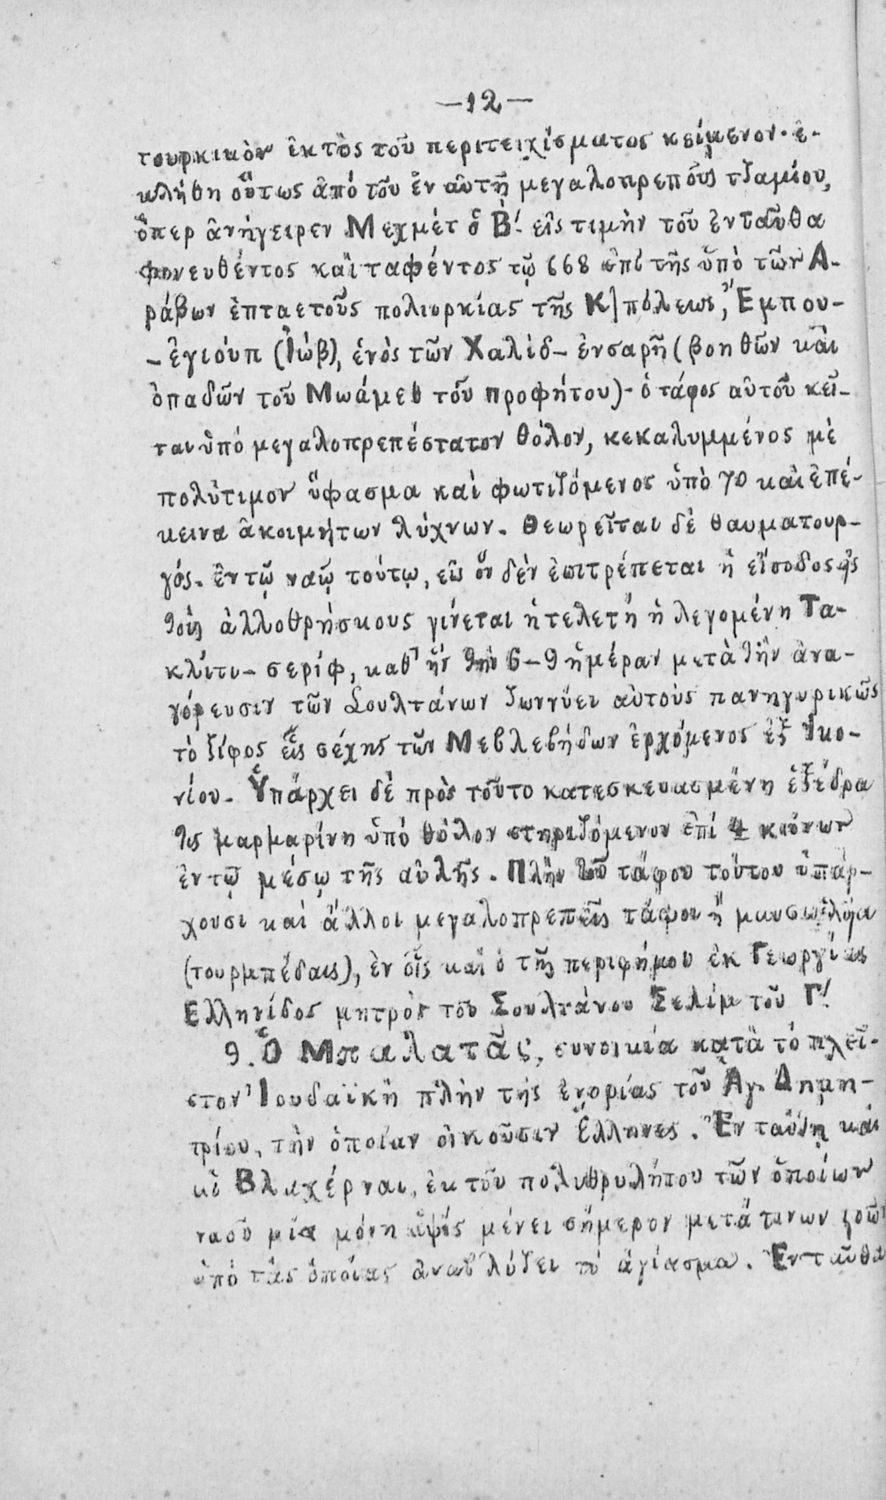 —12—
τουρκικὸν ἐκτὸς τοῦ περιτειχίσματος κείμενον· ἐ-
κλήθη οὕτως ἀπό τοῦ ἐν αὐτῇ μεγαλοπρεποῦς τζαμίου,
ὅπερ ἀνήγειρεν Μεχμὲτ ὁ Β΄. εἰς τιμὴν τοῦ ἐνταῦθα
φονευθέντος καὶ ταφέντος τῷ 668 ἐπί τῆς ὑπὸ τῶν Ἀ-
ράβων ἑπταετοῦς πολιορκίας τῆς Κ]πόλεως, Ἐμπου-
-ἐγιούπ (Ἰώβ), ἑνὸς τῶν Χαλίδ-ἐνσαρῆ (βοηθῶν καὶ
ὀπαδῶν τοῦ Μωάμεθ τοῦ προφήτου)· ὁ τάφος αὐτοῦ κεῖ-
ται ὑπό μεγαλοπρεπέστατον θόλον, κεκαλυμμένος μὲ
πολύτιμον ὕφασμα καὶ φωτιζόμενος ὑπὸ 70 καὶ ἐπέ-
κεινα ἀκοιμήτων λύχνων. Θεωρεῖται δὲ θαυματουρ-
γός. ἐν τῷ ναῷ τούτῳ, εἰς ὃν δὲν ἐπιτρέπεται ἡ εἴσοδος εἰς
τοὺς ἀλλοθρήσκους γίνεται ἡ τελετὴ ἡ λεγομένη Τα-
κλίτι-σερίφ, καθ' ἣν τὴν 6-9 ἡμέραν μετὰ τὴν ἀνα-
γόρευσιν τῶν Σουλτάνων ζωννύει αὐτοὺς πανηγυρικῶς
τὸ ξίφος εἷς σέχης τῶν Μεβλεβήδων ἐρχόμενος ἐξ Ἰκο-
νίου. Ὑπάρχει δὲ πρὸς τοῦτο κατεσκευασμένη ἐξέδρα
τις μαρμαρίνη ὑπό θόλον στηριζόμενον ἐπί 4 κιόνων
ἐν τῷ μέσῳ τῆς αὐλῆς. Πλὴν τοῦ τάφου τούτου ὑπάρ-
χουσι καὶ ἄλλοι μεγαλοπρεπεῖς τάφοι ἢ μαυσωλεῖα
(τουρμπέδαις), ἐν οἷς καὶ ὁ τῆς περιφήμου ἐκ Γεωργίας
Ἑλληνίδος μητρὸς τοῦ Σουλτάνου Σελὶμ τοῦ Γ΄.
9. Ὁ Μπαλατᾶς, συνοικία κατὰ τὸ πλεῖ-
στον Ἰουδαϊκὴ πλὴν τῆς ἐνορίας τοῦ Ἁγ. Δημη-
τρίου, τὴν ὁποίαν οἰκοῦσιν Ἕλληνες. Ἐν ταύτῃ καὶ
αἱ Βλαχέρναι, ἐκ τοῦ πολυθρυλήτου τῶν ὁποίων
ναοῦ μία μόνη ἀψίς μένει σήμερον μετά τινων
ὑπὸ τὰς ὁποίας ἀναβλύζει τὸ ἁγίασμα. Ἐνταῦθα